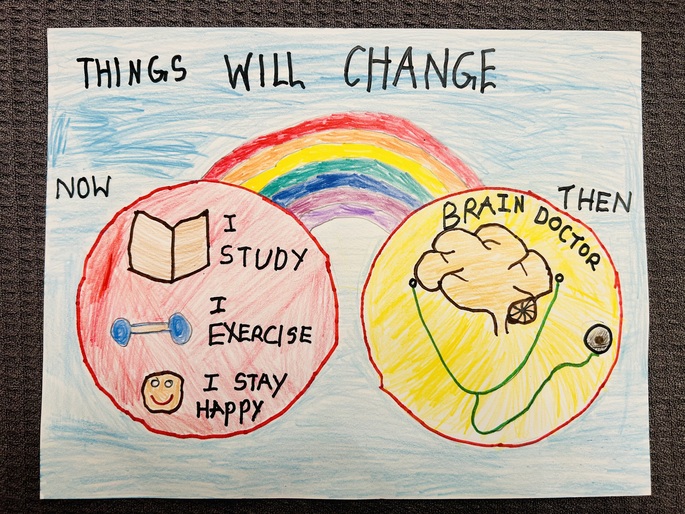 THINGS WILL CHANGE
NOW
I
STUDY
I
EXERCISE
I STAY
HAPPY
THEN
BRAIN DOCTOR